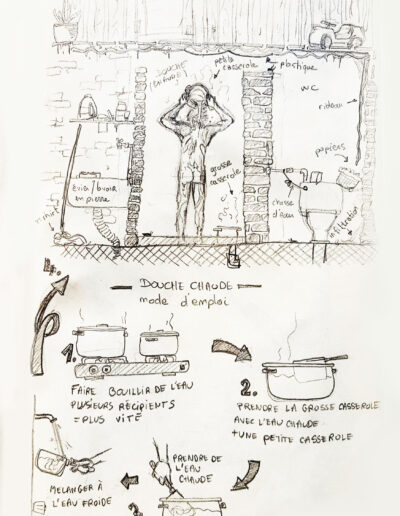 petite
casserole
DOUCHE
plastique
WC
rideau
papiers
grosse
casserole
évier/lavoir
en pierre
chasse
d'eau
infiltration
4.
DOUCHE CHAUDE
mode d'emploi
1.
FAIRE BOUILLIR DE L'EAU
PLUSIEURS RÉCIPIENTS
= PLUS VITE
2.
PRENDRE LA GROSSE CASSEROLE
AVEC L'EAU CHAUDE
+ UNE PETITE CASSEROLE
PRENDRE DE
L'EAU
CHAUDE
MELANGER À
L'EAU FROIDE
3.